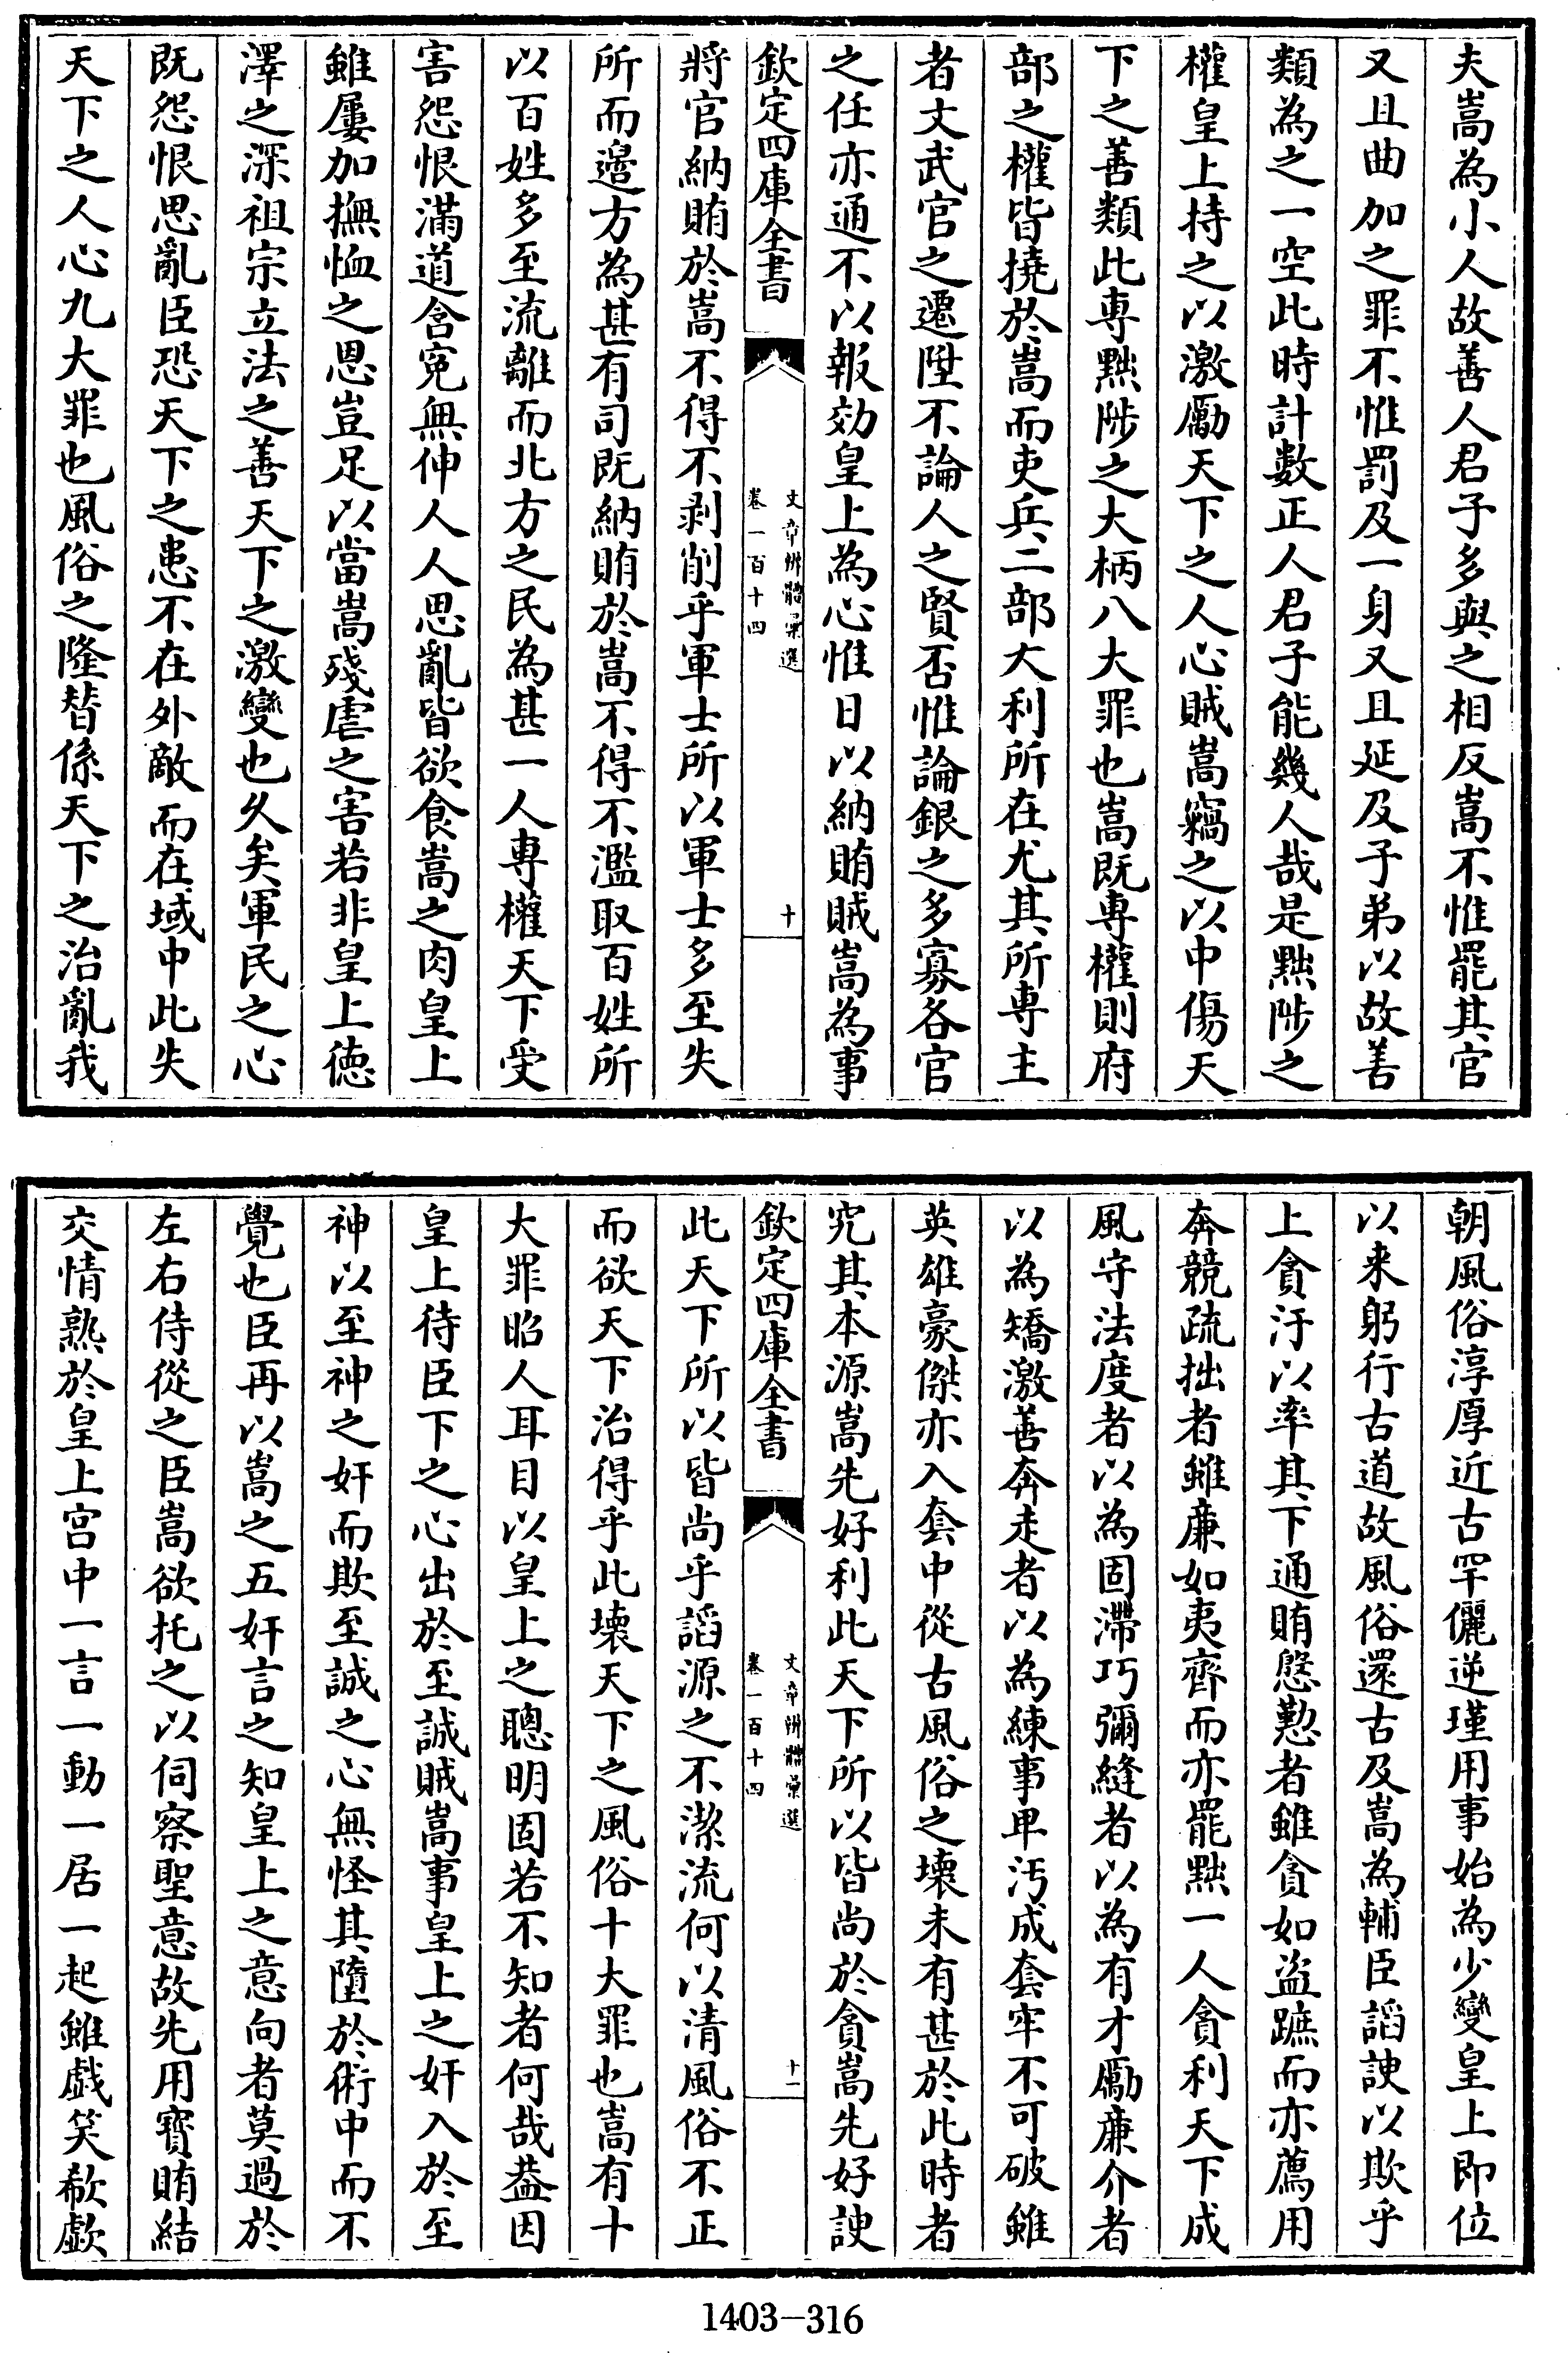 夫嵩為小人故善人君子多與之相反嵩不惟罷其官
又且曲加之罪不惟罰及一身又且延及子弟以故善
類為之一空此時計數正人君子能幾人哉是黜陟之
權皇上持之以激勵天下之人心賊嵩竊之以中傷天
下之善類此專黜陟之大柄八大罪也嵩既專權則府
部之權皆撓於嵩而吏兵二部大利所在尤其所專主
者文武官之遷陞不論人之賢否惟論銀之多寡各官
之任亦通不以報効皇上為心惟日以納賄賊嵩為事
欽定四庫全書
文章辨體彙選
卷一百十四
十
將官納賄於嵩不得不剥削乎軍士所以軍士多至失
所而邉方為甚有司既納賄於嵩不得不濫取百姓所
以百姓多至流離而北方之民為甚一人專權天下受
害怨恨滿道含寃無伸人人思亂皆欲食嵩之肉皇上
雖屢加撫恤之恩豈足以當嵩殘虐之害若非皇上德
澤之深祖宗立法之善天下之激變也久矣軍民之心
既怨恨思亂臣恐天下之患不在外敵而在域中此失
天下之人心九大罪也風俗之隆替係天下之治亂我
朝風俗淳厚近古罕儷逆瑾用事始為少變皇上即位
以来躬行古道故風俗還古及嵩為輔臣謟諛以欺乎
上貪汙以率其下通賄慇懃者雖貪如盜蹠而亦薦用
奔競疏拙者雖亷如夷齊而亦罷黜一人貪利天下成
風守法度者以為固滯巧彌縫者以為有才勵亷介者
以為矯激善奔走者以為練事卑汚成套牢不可破雖
英雄豪傑亦入套中從古風俗之壊未有甚於此時者
究其本源嵩先好利此天下所以皆尚於貪嵩先好諛
欽定四庫全書
文章辨體彙選
卷一百十四
十一
此天下所以皆尚乎謟源之不潔流何以清風俗不正
而欲天下治得乎此壊天下之風俗十大罪也嵩有十
大罪昭人耳目以皇上之聰明固若不知者何哉葢因
皇上待臣下之心出於至誠賊嵩事皇上之奸入於至
神以至神之奸而欺至誠之心無怪其墮於術中而不
覺也臣再以嵩之五奸言之知皇上之意向者莫過於
左右侍從之臣嵩欲托之以伺察聖意故先用寳賄結
交情熟於皇上宫中一言一動一居一起雖戯笑欷歔
1403-316